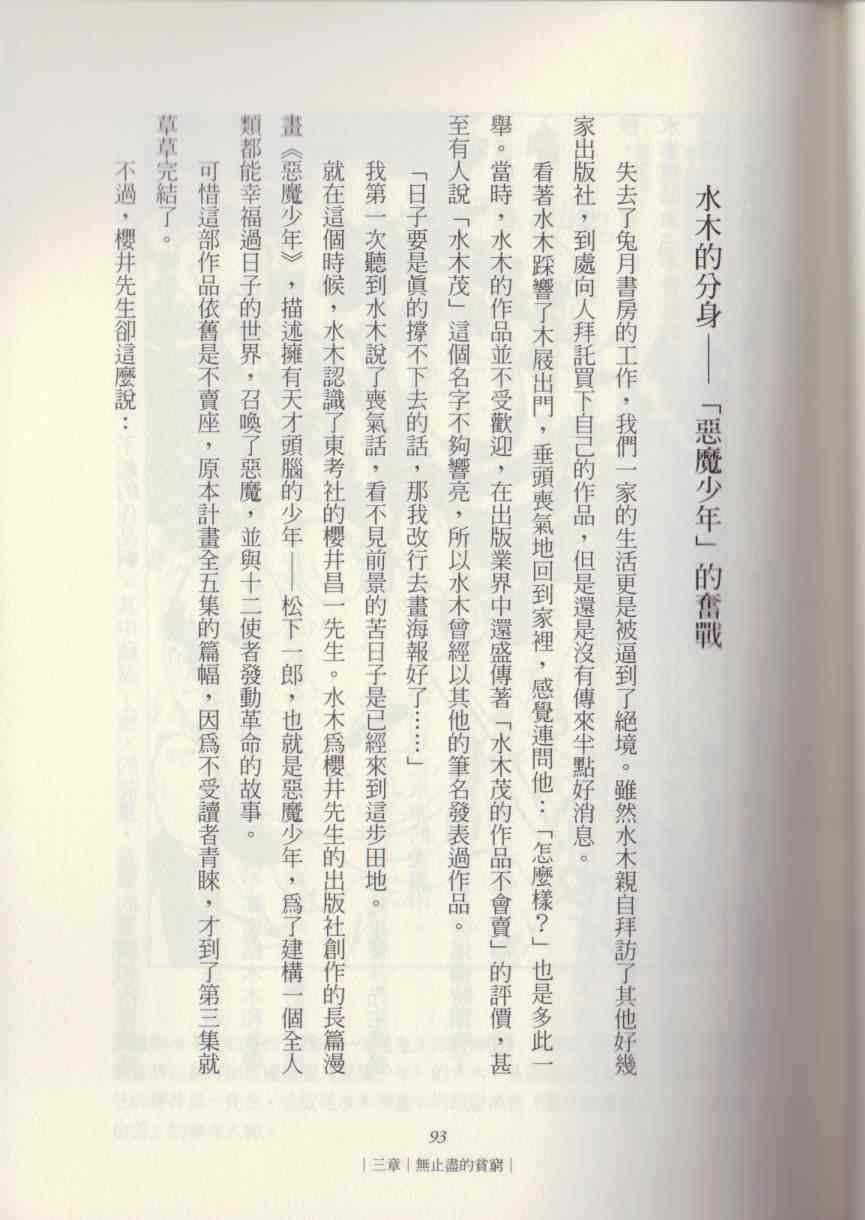 水木的分身——「惡魔少年」的奮戰
失去了兔月書房的工作，我們一家的生活更是被逼到了絕境。雖然水木親自拜訪了其他好幾
家出版社，到處向人拜託買下自己的作品，但是還是沒有傳來半點好消息。
看著水木踩響了木屐出門，垂頭喪氣地回到家裡，感覺連問他：「怎麼樣？」也是多此一
舉。當時，水木的作品並不受歡迎，在出版業界中還盛傳著「水木茂的作品不會賣」的評價，甚
至有人說「水木茂」這個名字不夠響亮，所以水木曾經以其他的筆名發表過作品。
「日子要是真的撐不下去的話，那我改行去畫海報好了……」
我第一次聽到水木說了喪氣話，看不見前景的苦日子是已經來到這步田地。
就在這個時候，水木認識了東考社的櫻井昌一先生。水木為櫻井先生的出版社創作的長篇漫
畫《惡魔少年》，描述擁有天才頭腦的少年——松下一郎，也就是惡魔少年，為了建構一個全人
類都能幸福過日子的世界，召喚了惡魔，並與十二使者發動革命的故事。
可惜這部作品依舊是不賣座，原本計畫全五集的篇幅，因為不受讀者青睞，才到了第三集就
草草完結了。
不過，櫻井先生卻這麼說：
93
｜三章｜無止盡的貧窮｜